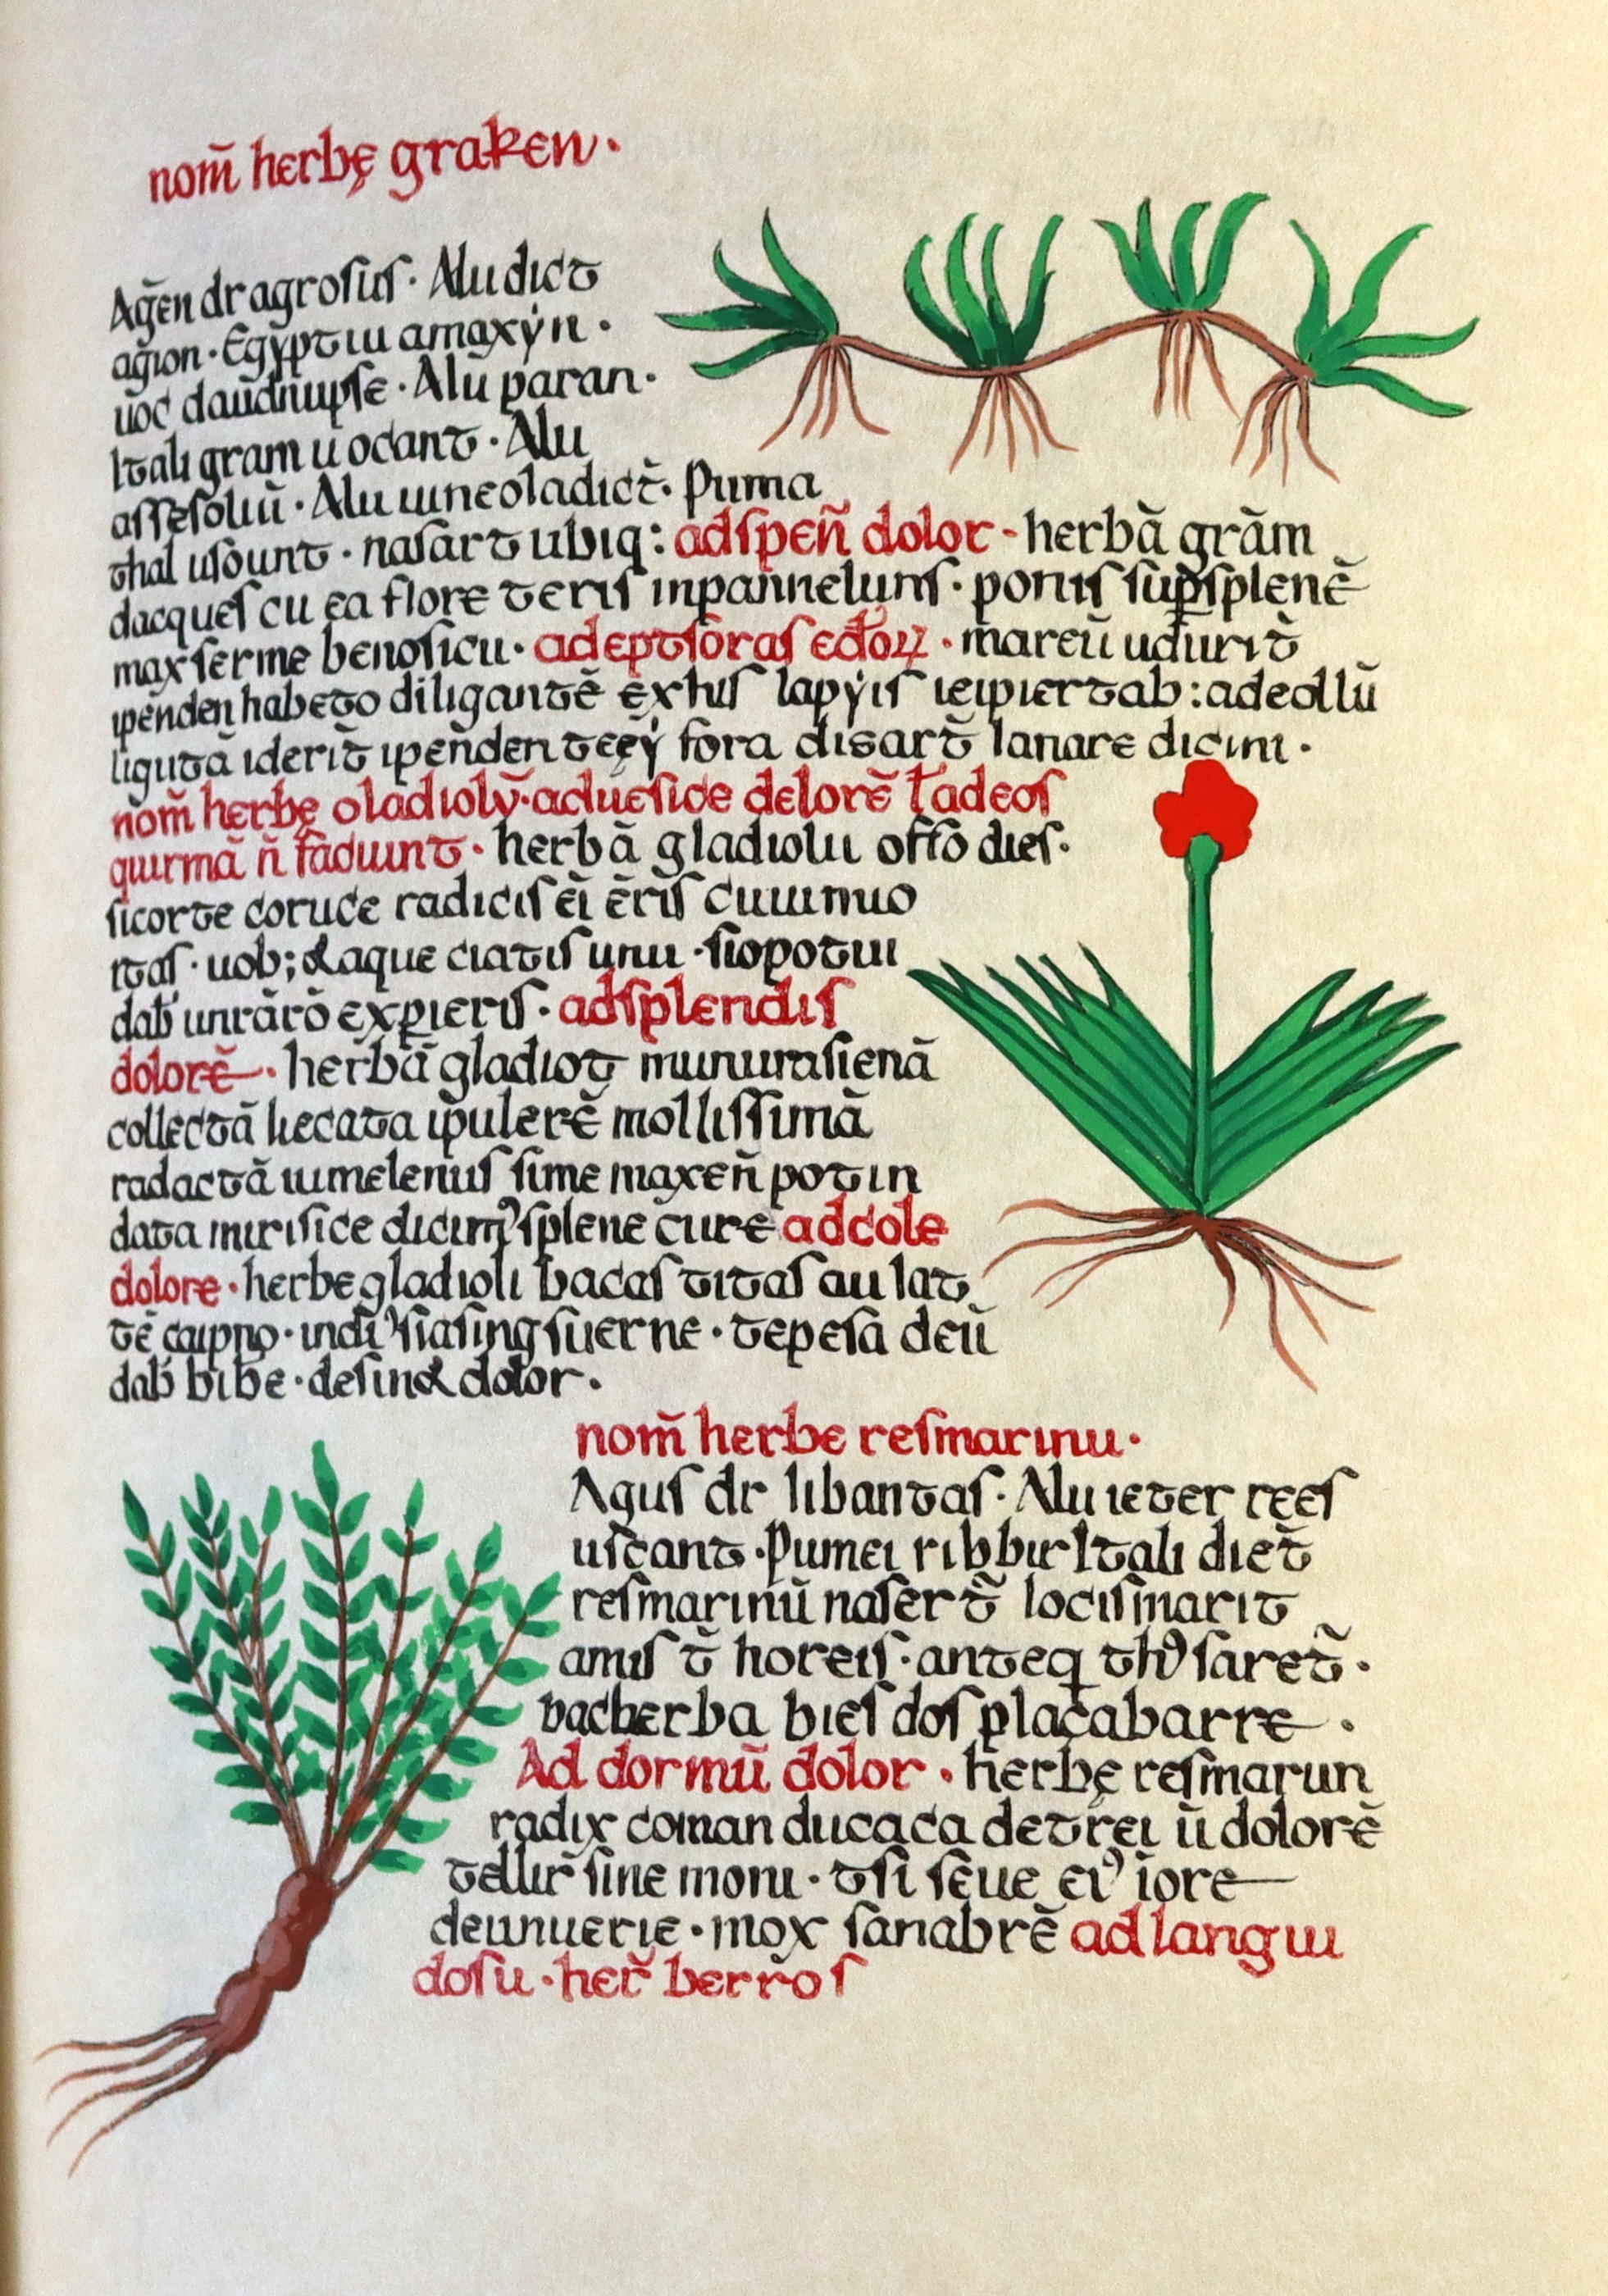 nom̄ herbę graken·
Aḡen dr agrosus· Alu dict
agion· Egyptiu amaxyn·
uoc daūdnupse· Alu paran·
Itali gram uocant· Alu
assesoluū· Alu uineoladict̄· Puma
thal usount· nasart ubiq: adspen̄ dolor - herbā grām
dacques cu ea flore teris inpanneluns· ponis sup̄splenē
max ferme benosicu· adeptsoras
habeto diligantē extus lapyis adeollū
ligutā iderit̄ fora disart̄ lanare dicini·
nom̄ herbę oladiolv̄·aduesice delorē t̄adeos
quirmā n̄ fāduunt· herbā gladiolu offo dies·
sicorte coruce radicis ēi ēris cuiumuo
itas· uob; &aque ciatis unu·siopotui
dab unrārō expieris· adsplendis
dolorē· herbā gladiot munurasienā
collectā hecata ip̄ulerē mollissimā
radactā uimelenus sime maxen̄ potin
data mirisice dicim᾽splene cure adcole
dolore· herbe gladioli bacas titas au lat
tē caipno· indi᾽siasing suerne· tepesā deū
dab bibe·desin& dolor·
nom̄ herbe resmarinu·
Agus dr libantas· Alu ieter rees
uscant·Pumei ribbir Itali diet̄
resmarinū nasert̄ locismarit
amis t̄ horeis·anteq saret̄·
bacherba bies dos placabarre·
Ad dormū dolor· herbę resmarun
radix coman ducaca detrei ū dolorē
tellir sine moru· tsi sēue ei᾽ iore
deunuerie·mox sanabrē ad langui
dosu·her̄ berros